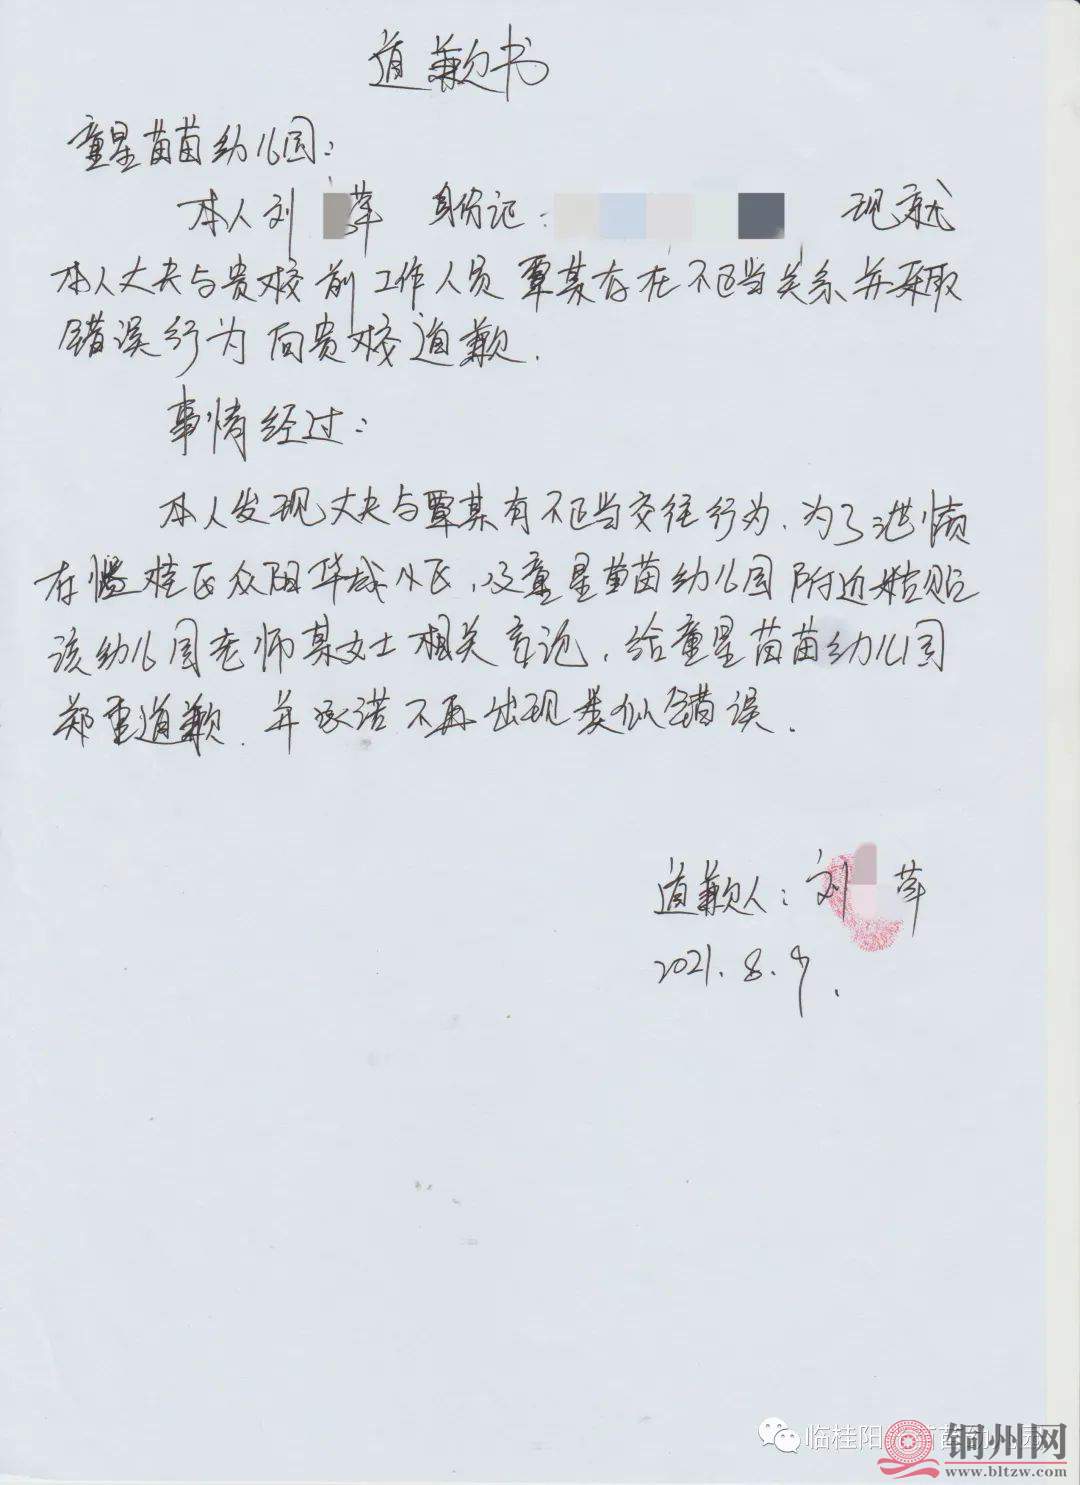 道歉书
童星苗苗幼儿园：
本人刘 萍 身份证： 现就
本人丈夫与贵校前工作人员覃某存在不正当关系并采取
错误行为向贵校道歉.
事情经过：
本人发现丈夫与覃某有不正当交往行为.为了泄愤
在临桂区众阳华城小区，及童星苗苗幼儿园附近粘贴
该幼儿园老师某女士相关言论，给童星苗苗幼儿园
郑重道歉.并承诺不再出现类似错误.
道歉人：刘 萍
2021.8.9.
临桂阳 苗苗幼儿园
铜州网
www.bltzw.com